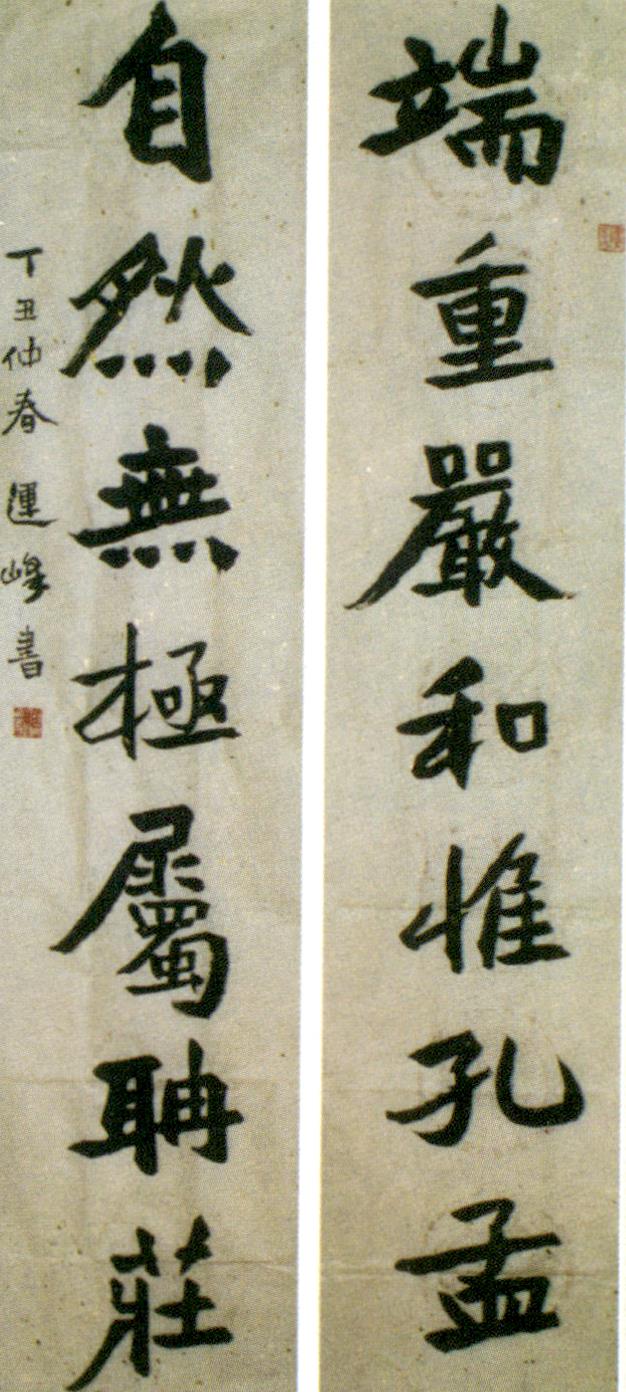 端重嚴和惟孔孟
自然無極屬聃莊
丁丑仲春 運峰書